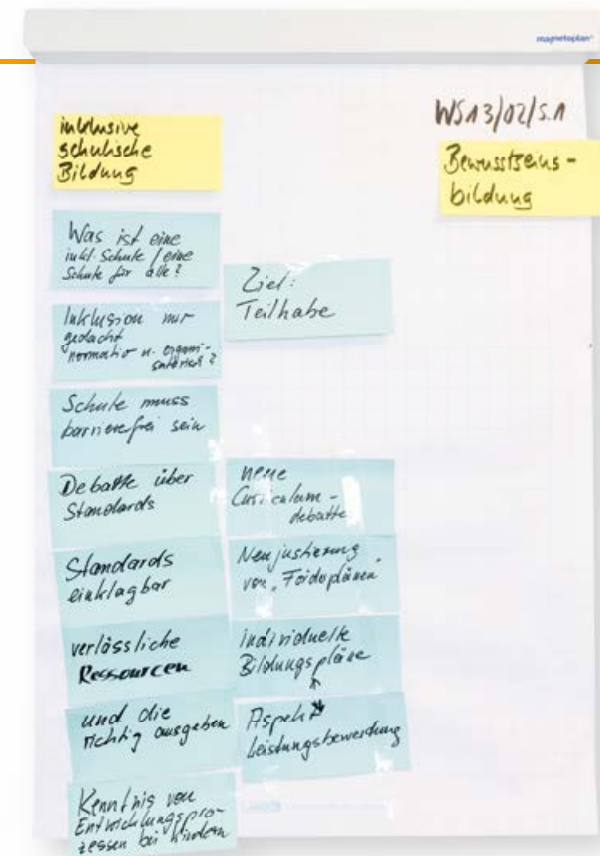 magnetoplan
WS13/02/S.1
inklusive
schulische
Bildung
Bewusstseins-
bildung
Was ist eine
inkl. Schule / eine
Schule für alle?
Inklusion nur
gedacht
normativ u. organi-
satorisch?
Schule muss
barrierefrei sein
Debatte über
Standards
Standards
einklagbar
verlässliche
Ressourcen
und die
richtig ausgeben
Kenntnis von
Entwicklungspro-
zessen bei Kindern
Ziel:
Teilhabe
neue
Curriculum-
debatte
Neujustierung
von „Förderplänen"
individuelle
Bildungspläne
Aspekt
Leistungsbewertung